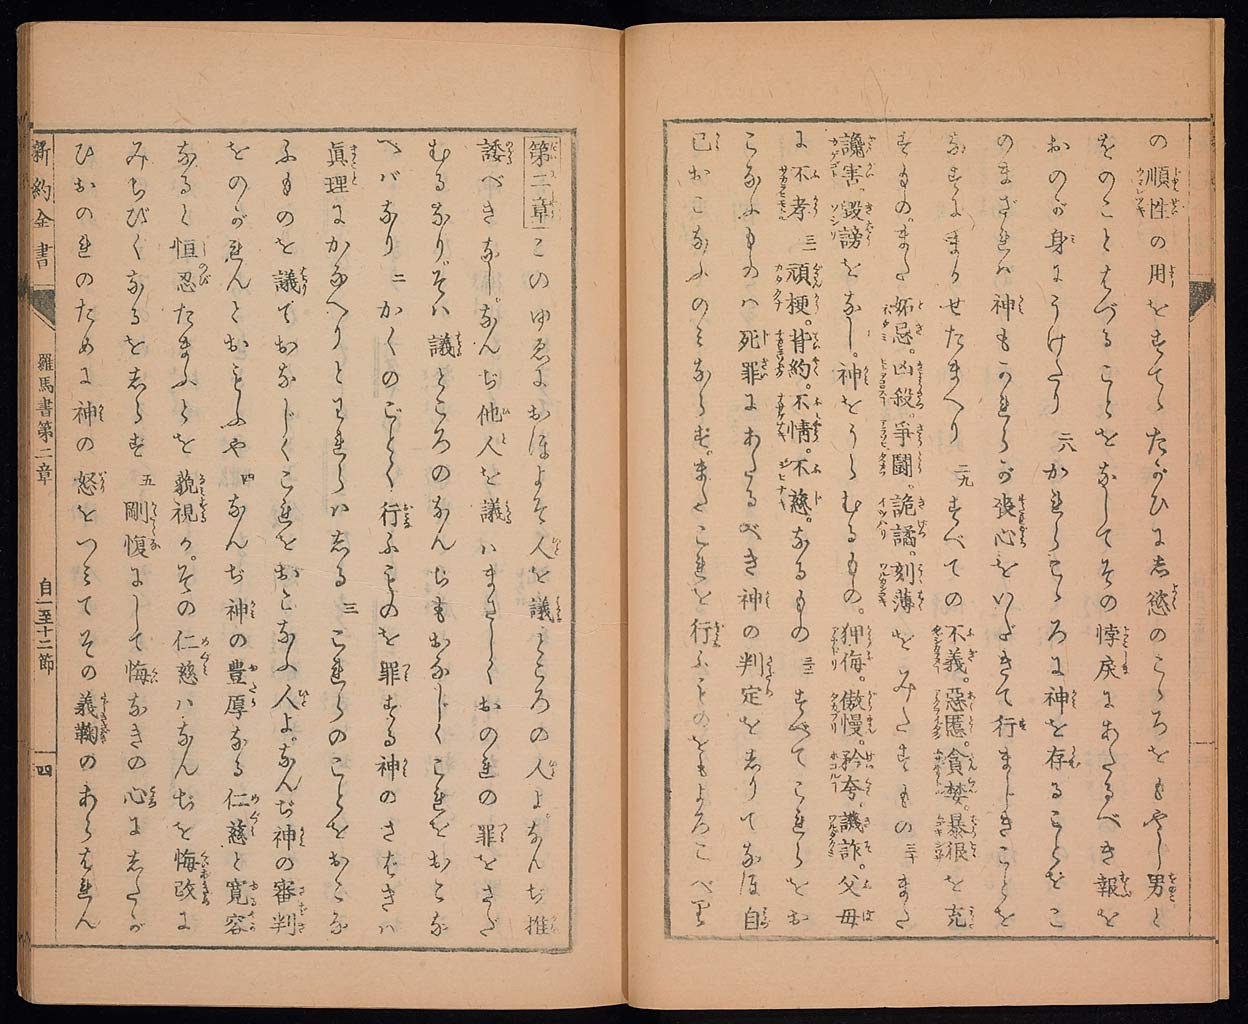 の順性の用をすてゝたがひに志慾のこゝろをもやし男と
をのことはづることをなしてその悖戻にあたるべき報を
おのが身にうけたり 二八 かれらこゝろに神を存ることをこ
のまざれバ神もかれらが喪心をいだきて行まじきことを
なすにまかせたまへり 二九 すべての不義。惡慝。貪婪。暴很を充
すもの。また妬忌。凶殺。爭鬪。詭譎。刻薄をみたすもの 三十 また
讒害。毀謗をなし。神をうらむるもの。狎侮。傲慢。矜夸。譏詐。父母
に不孝 三一 頑梗。背約。不情。不慈。なるもの 三二 すべてこれらをお
こなふものハ死罪にあたるべき神の判定を志りてなほ自
己おこなふのみならず。またこれを行ふものをもよろこべり
第二章 このゆゑにおほよそ人を議ところの人よ。なんぢ推
諉べきなし。なんぢ他人を議ハまさしくおのれの罪をさだ
むるなり。そハ議ところのなんぢもおなじくこれをおこな
へバなり 二 かくのごとく行ふものを罪する神のさばきハ
眞理にかなへりとわれらハ志る 三 これらのことをおこな
ふものを議ておなじくこれをおこなふ人よ。なんぢ神の審判
をのがれんとおもふや 四 なんぢ神の豊厚なる仁慈と寛容
なると恒忍たまふとを藐視か。その仁慈ハなんぢを悔改に
みちびくなるを志らず 五 剛愎にして悔なきの心に志たが
ひおのれのために神の怒をつみてその義鞫のあらはれん
新約全書
羅馬書第二章
自一至十二節
四